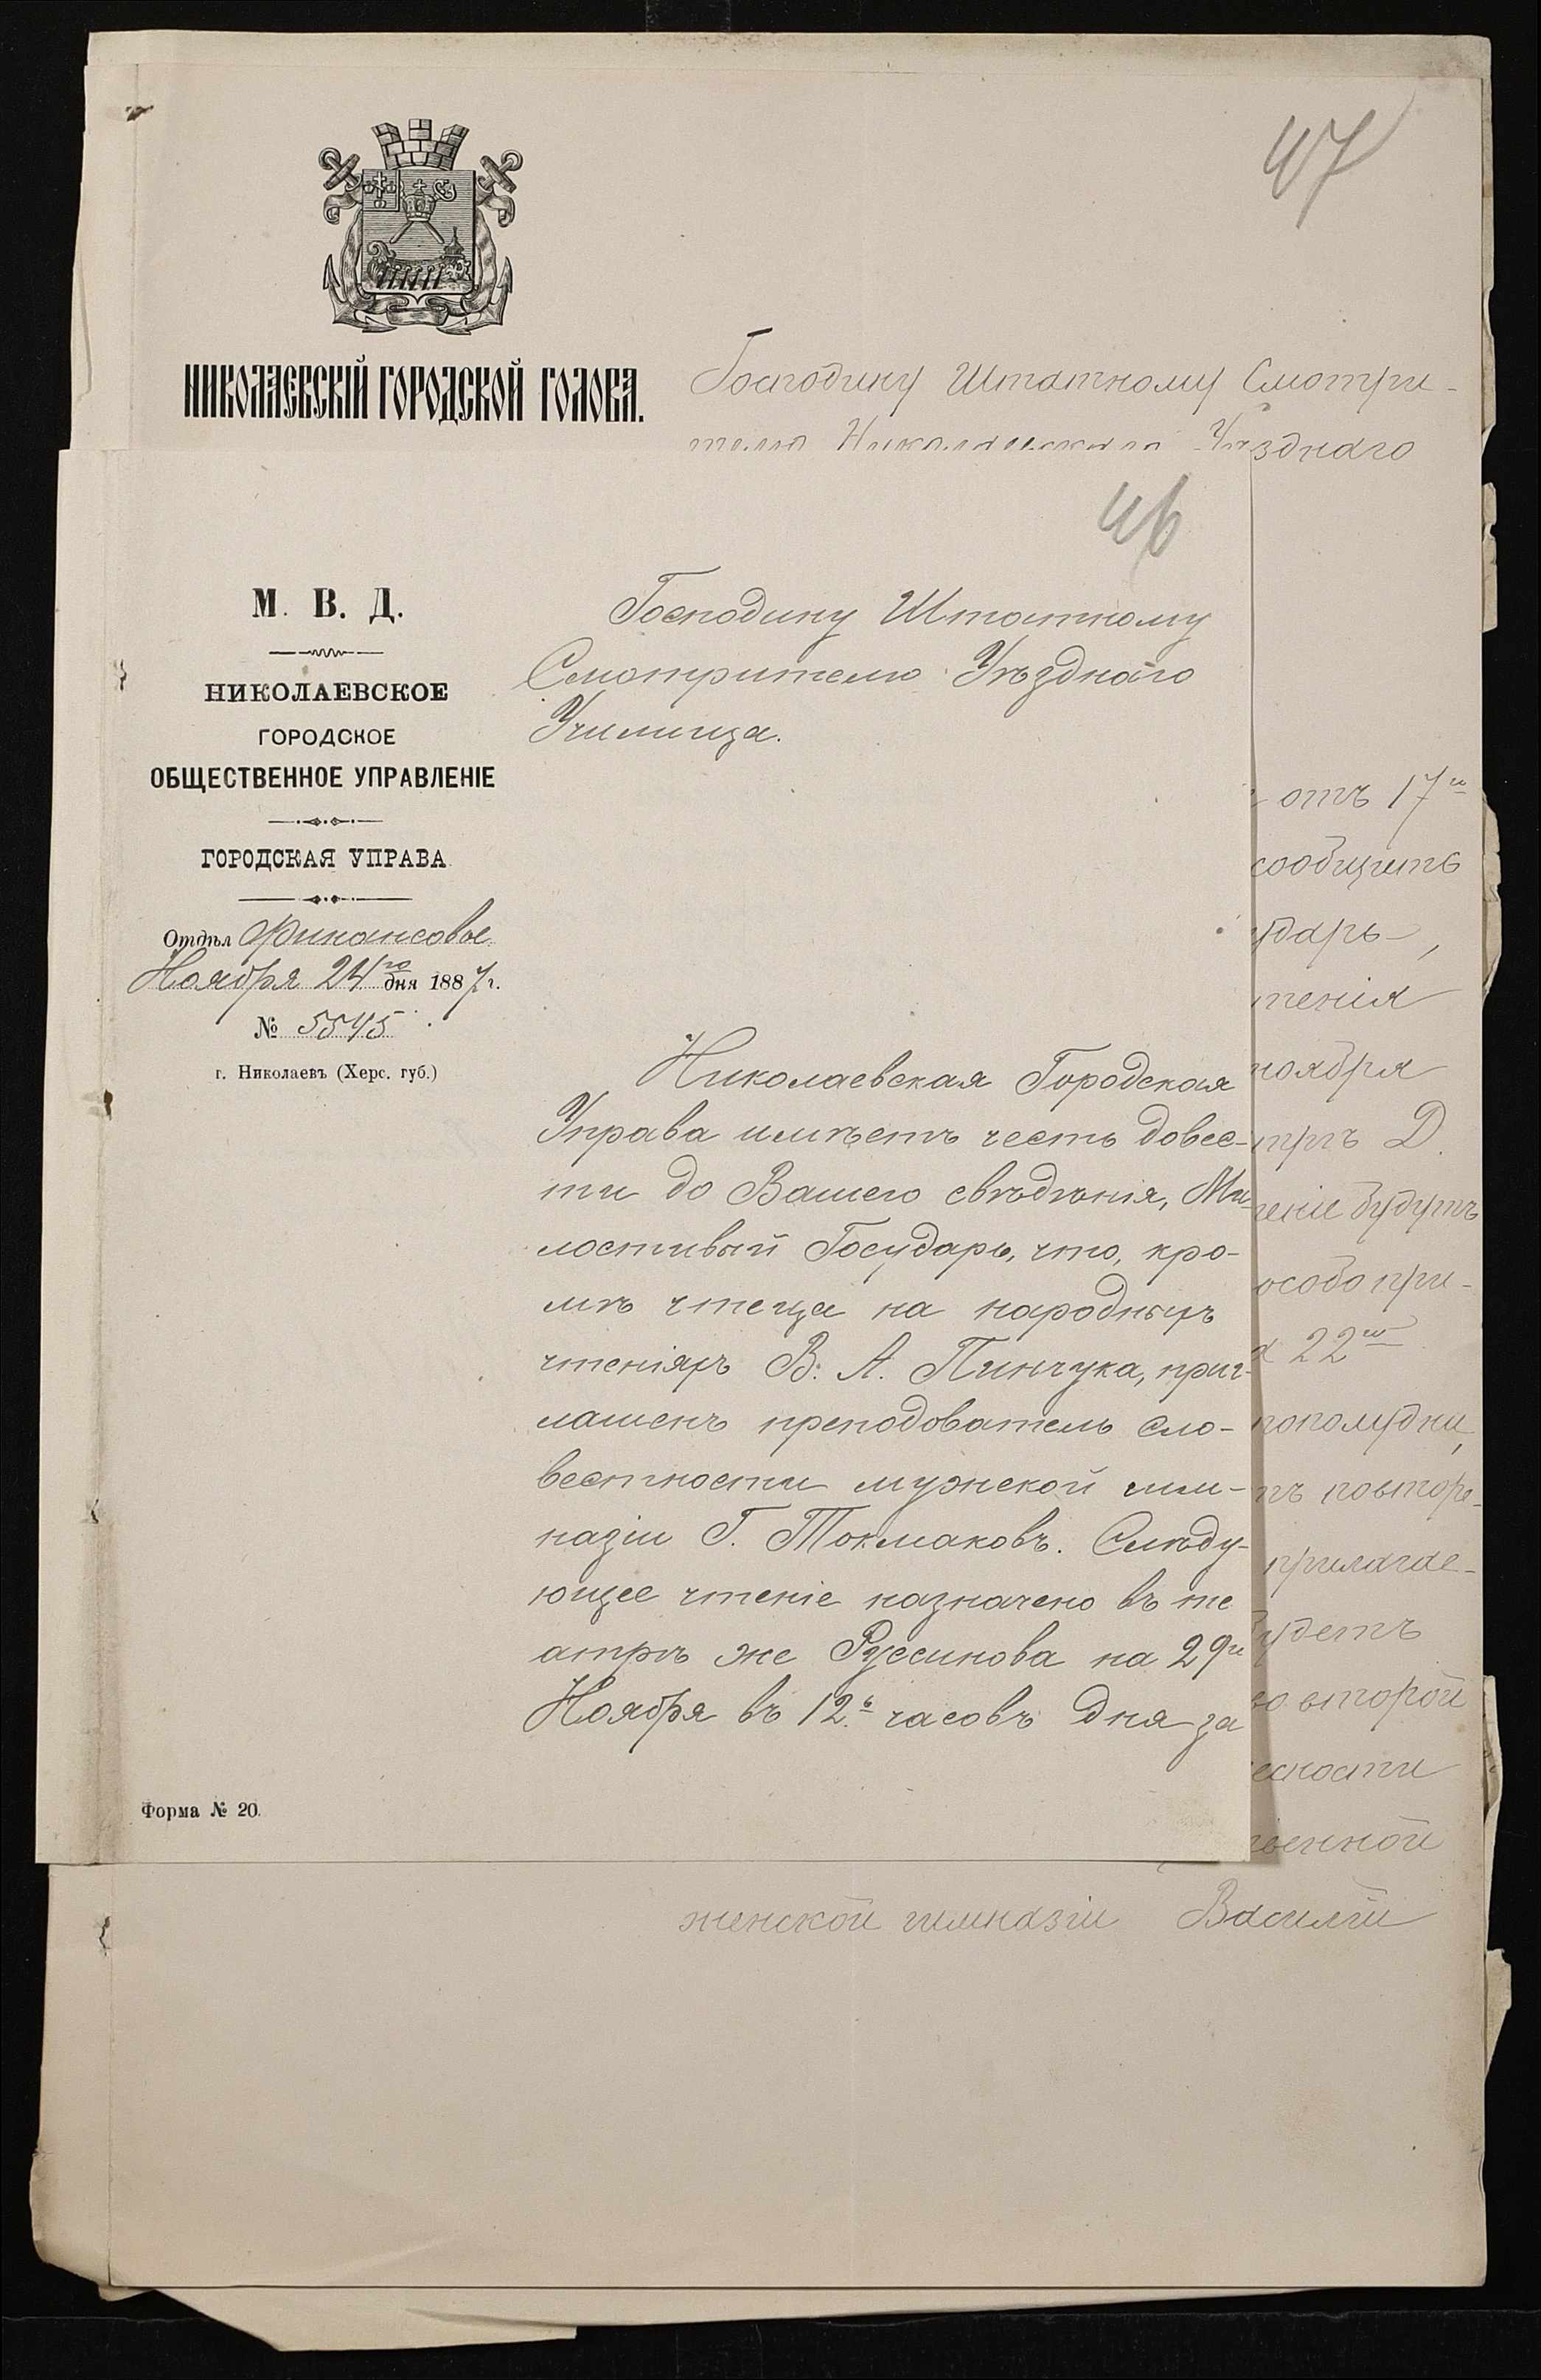 47
НИКОЛАЕВСКІЙ ГОРОДСКОЙ ГОЛОВА.
Господину Штатному Смотри-
телю Николаевскаго Уѣзднаго
46
М. В. Д.
НИКОЛАЕВСКОЕ
ГОРОДСКОЕ
ОБЩЕСТВЕННОЕ УПРАВЛЕНІЕ
ГОРОДСКАЯ УПРАВА
Отдѣл Финансовое
Ноября 24го дня 1887 г.
№ 5545
г. Николаевъ (Херс. губ.)
Форма № 20.
Господину Штатному
Смотрителю Уѣзднаго
Училища.
Николаевская Городская
Управа имѣетъ честь довес-
ти до Вашего свѣдѣнія, Ми-
лостивый Государь, что, кро-
мѣ чтеца на народныхъ
чтеніяхъ В. А. Пинчука, приг-
лашенъ преподователь сло-
вестности мужской гим-
назіи Г. Токмаковъ. Слѣду-
ющее чтеніе назначено въ те
атрѣ же Руссинова на 29е
Ноября въ 12ь часовъ дня за
отъ 17го
сообщить
ударь,
тенія
ноября
трѣ Д.
теніе будутъ
особо при-
22го
пополудни,
повторе-
прилагае-
удетъ
второй
есности
венной
женской гимназіи Василій